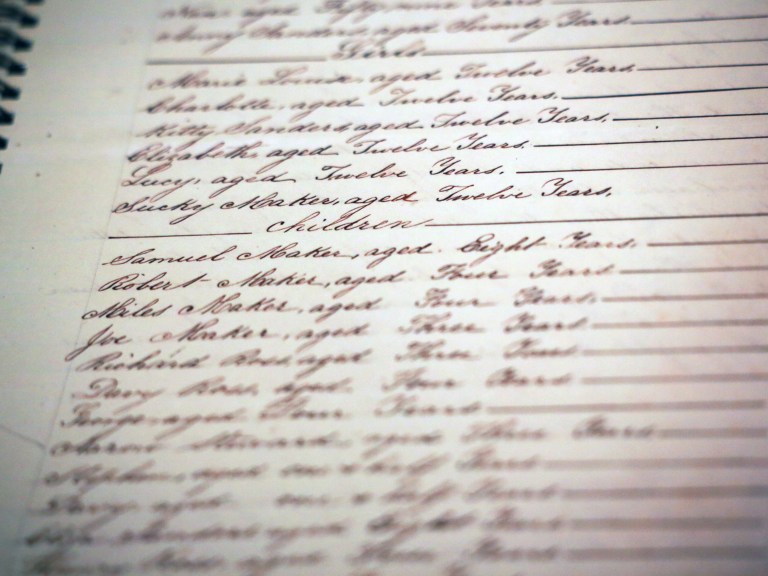 aged Fifty nine Years
Sanders, aged Seventy Years.
Girls
Maria Louisa, aged Twelve Years.
Charlotte, aged Twelve Years.
Kitty Sanders aged Twelve Years.
Elizabeth, aged Twelve Years.
Lucy, aged Twelve Years.
Sucky Maker, aged Twelve Years.
Children
Samuel Maker, aged Eight Years.
Robert Maker, aged Four Years.
Miles Maker, aged Four Years.
Joe Maker, aged Three Years.
Richard Ross, aged Three Years
Davy Ross, aged Four Years
George, aged Four Years
Aaron aged Three Years
Stephen, aged one & half Years
Davy aged one & half Years
Sanders aged Eight Years
aged Years